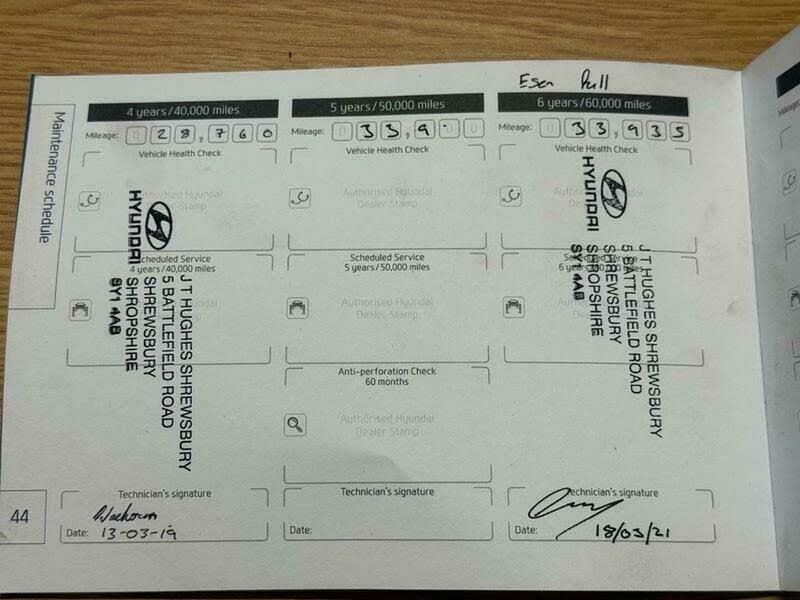 Maintenance schedule
4 years/40,000 miles
Mileage: 028,760
Vehicle Health Check
Authorised Hyundai
HYUNDAI
Scheduled Service
4 years/40,000 miles
J T HUGHES SHREWSBURY
5 BATTLEFIELD ROAD
SHREWSBURY
SHROPSHIRE
SY1 4AB
Technician's signature
Date: 13-03-19
5 years/50,000 miles
Mileage: 033,9
Vehicle Health Check
Authorised Hyundai
Dealer Stamp
Scheduled Service
5 years/50,000 miles
Authorised Hyundai
Dealer Stamp
Anti-perforation Check
60 months
Authorised Hyundai
Dealer Stamp
Technician's signature
Date:
6 years/60,000 miles
Mileage: 033,935
Vehicle Health Check
HYUNDAI
Scheduled Service
J T HUGHES SHREWSBURY
5 BATTLEFIELD ROAD
SHREWSBURY
SHROPSHIRE
SY1 4AB
Technician's signature
Date: 18/03/21
44
Mileage: